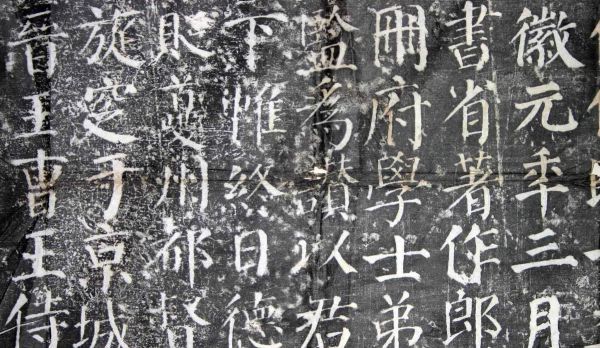 徽元年三月
書省著作郎
冊府學士弟
監為讃以君
下惟終日德
夔州都督
旋窆于京城
晉王曹王侍